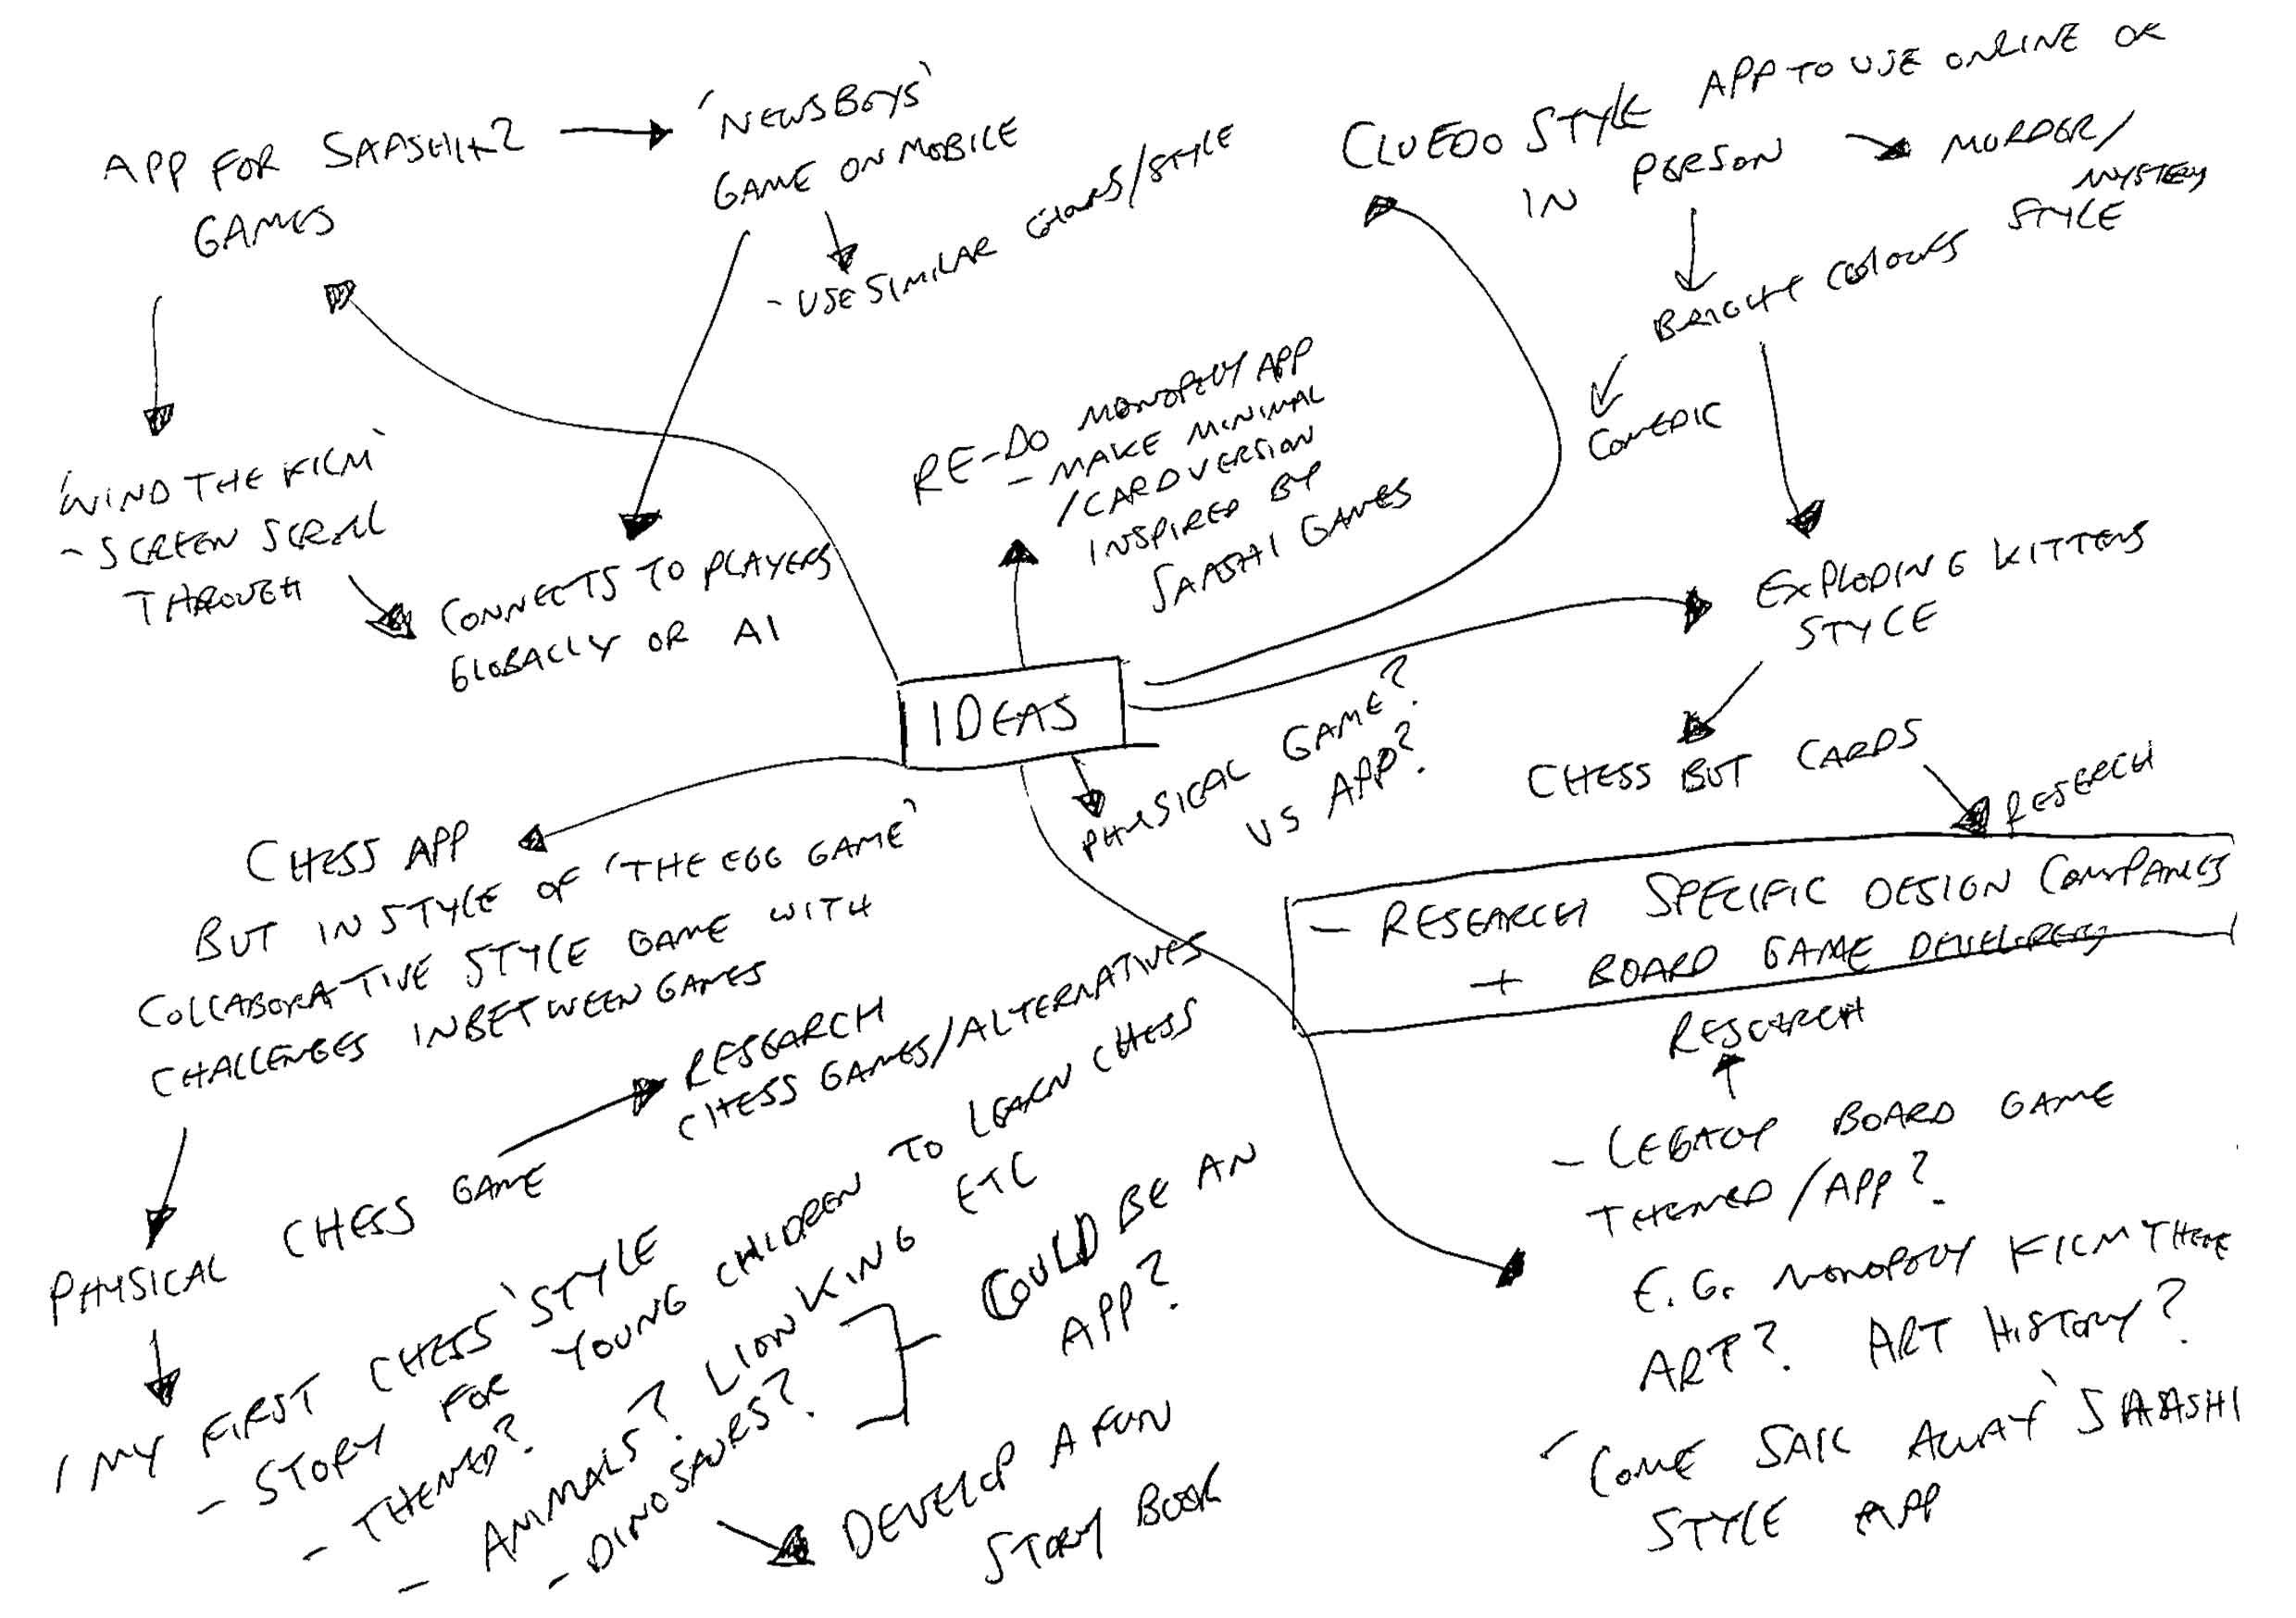 APP FOR SAASHI+2
GAMES
'NEWSBOYS'
GAME ON MOBILE
- USE SIMILAR COLOURS/STYLE
'WIND THE FILM'
- SCREEN SCROLL
THROUGH
CONNECTS TO PLAYERS
GLOBALLY OR AI
RE-DO MONOPOLY APP
- MAKE MINIMAL
/CARD VERSION
INSPIRED BY
SAASHI GAMES
CLUEDO STYLE APP TO USE ONLINE OR
IN PERSON
MURDER/
MYSTERY
STYLE
BRIGHT COLOURS
COMEDIC
EXPLODING KITTENS
STYLE
CHESS BUT CARDS
RESEARCH
IDEAS
PHYSICAL GAME?
VS APP?
- RESEARCH SPECIFIC DESIGN COMPANIES
+ BOARD GAME DEVELOPERS
RESEARCH
- LEGACY BOARD GAME
THEMED/APP?
E.G. MONOPOLY FILM THEME
ART? ART HISTORY?
'COME SAIL AWAY' SAASHI
STYLE APP
CHESS APP
BUT IN STYLE OF 'THE EGG GAME'
COLLABORATIVE STYLE GAME WITH
CHALLENGES INBETWEEN GAMES
PHYSICAL CHESS GAME
RESEARCH
CHESS GAMES/ALTERNATIVES
'MY FIRST CHESS' STYLE
- STORY FOR YOUNG CHILDREN TO LEARN CHESS
- THEMED?
- ANIMALS? LION KING ETC
- DINOSAURS?
COULD BE AN
APP?
DEVELOP A FUN
STORY BOOK